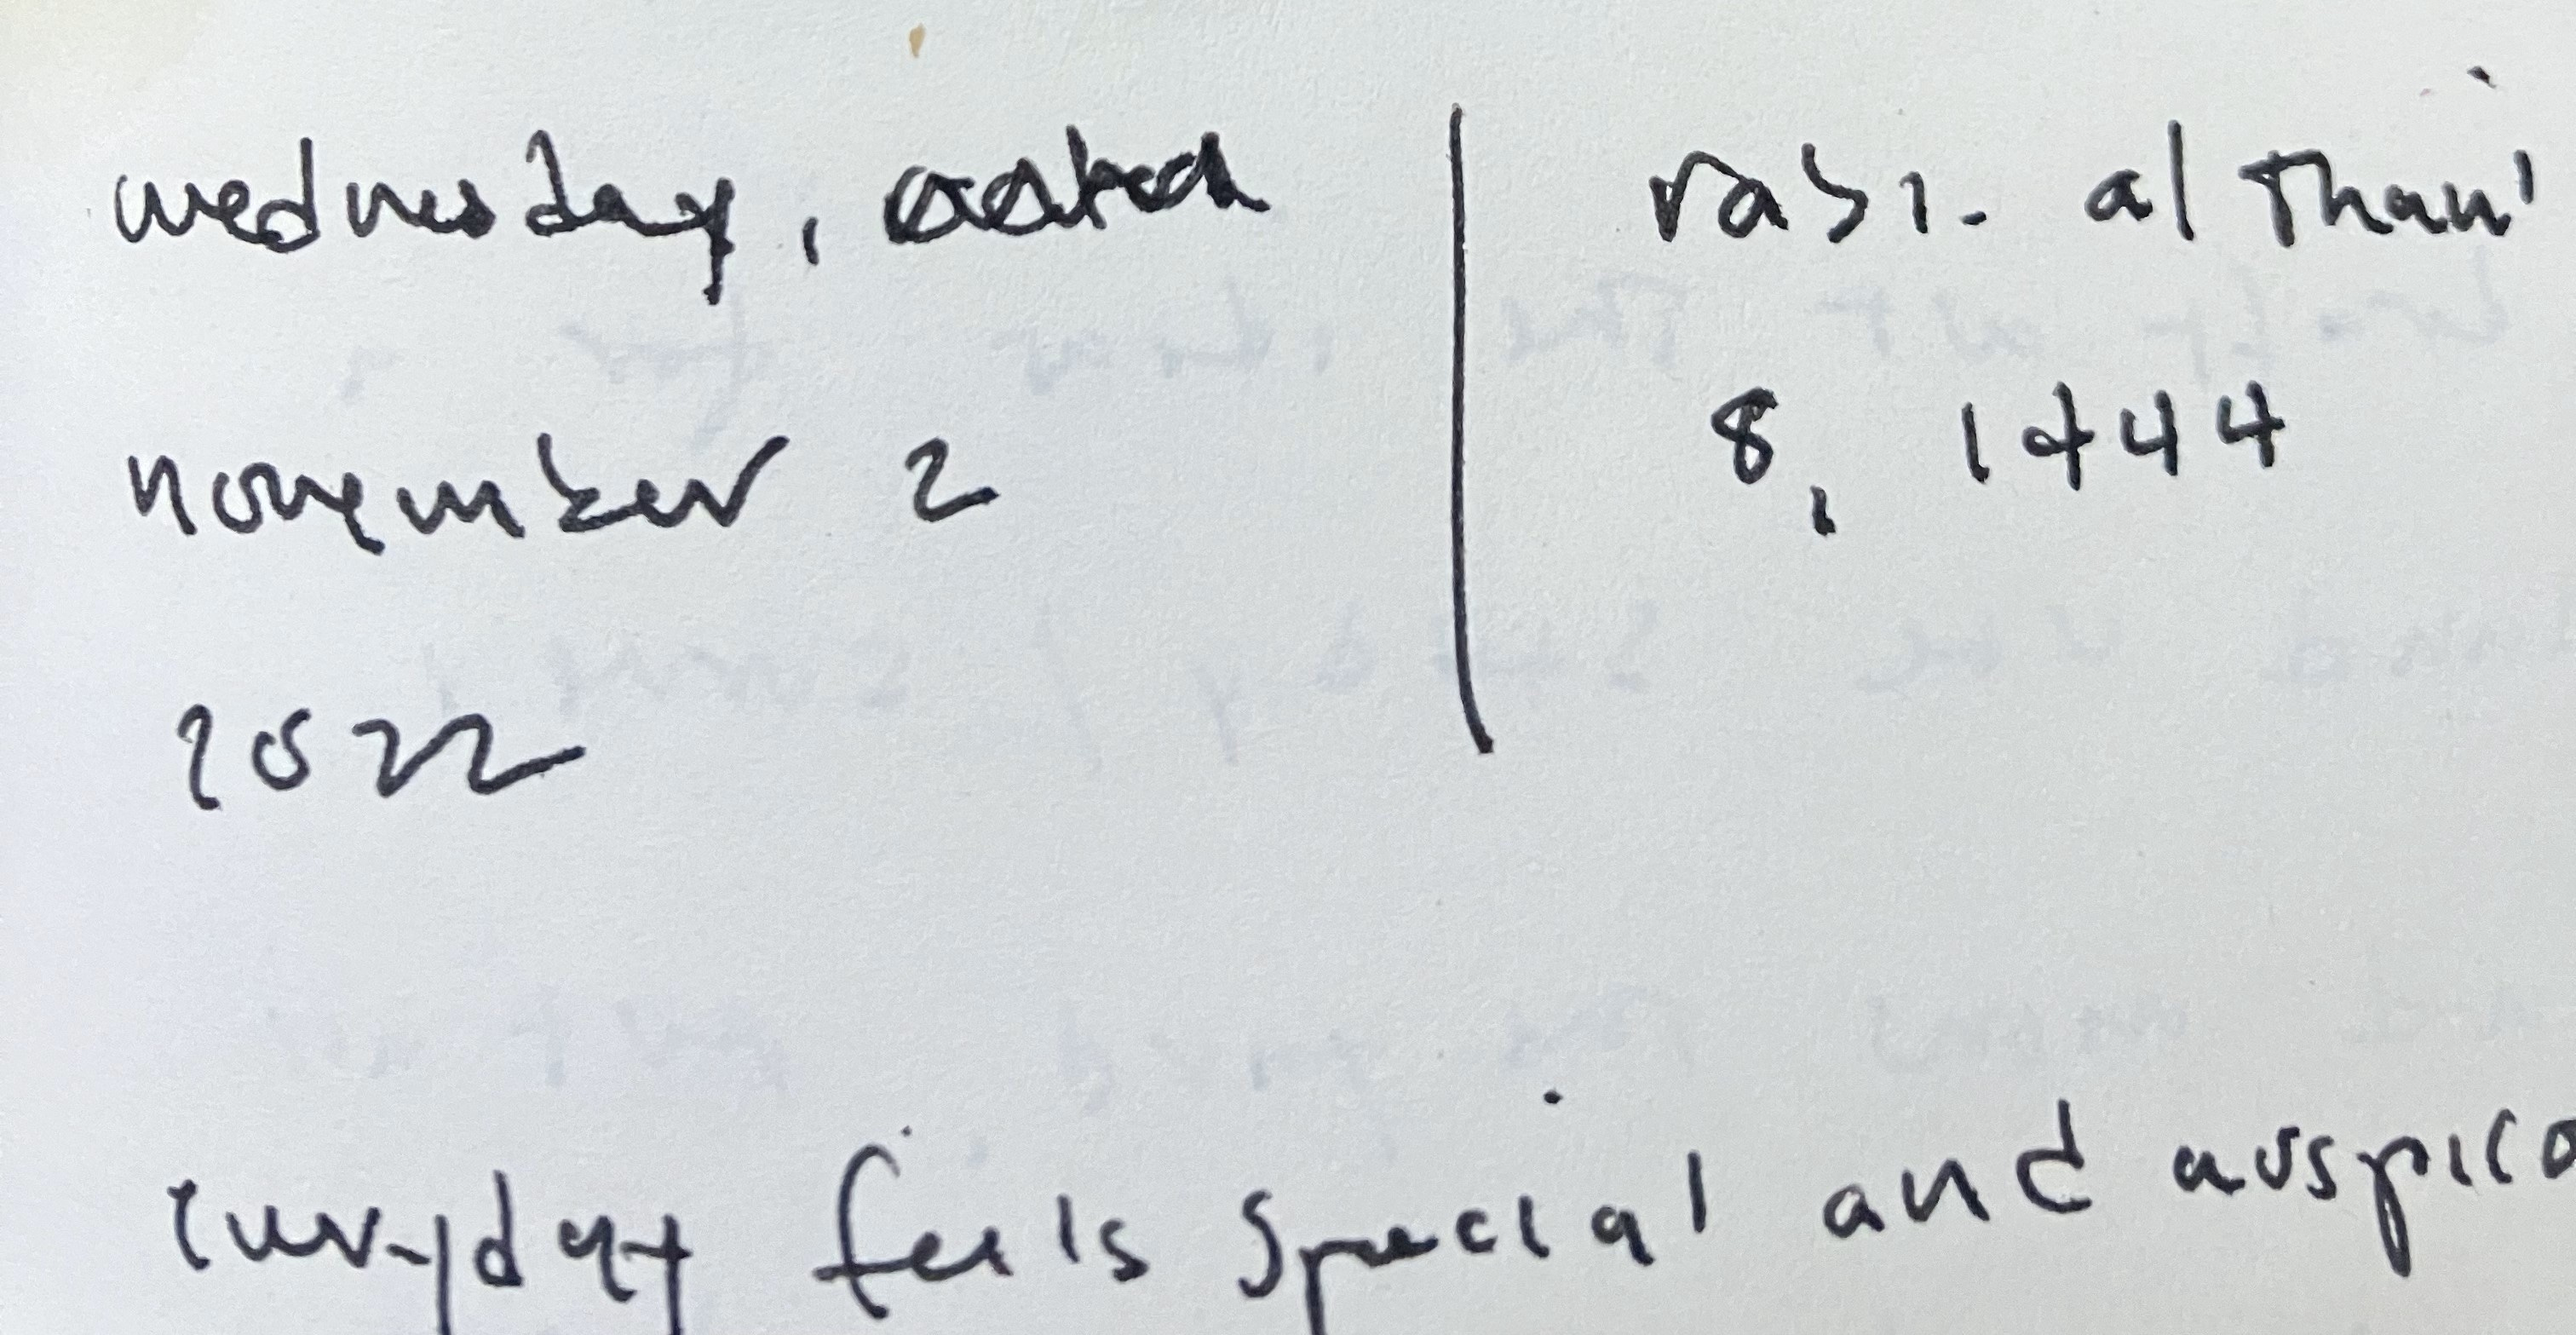 wednesday,
november 2
2022
rabi. al thani
8, 1444
everyday feels special and auspico